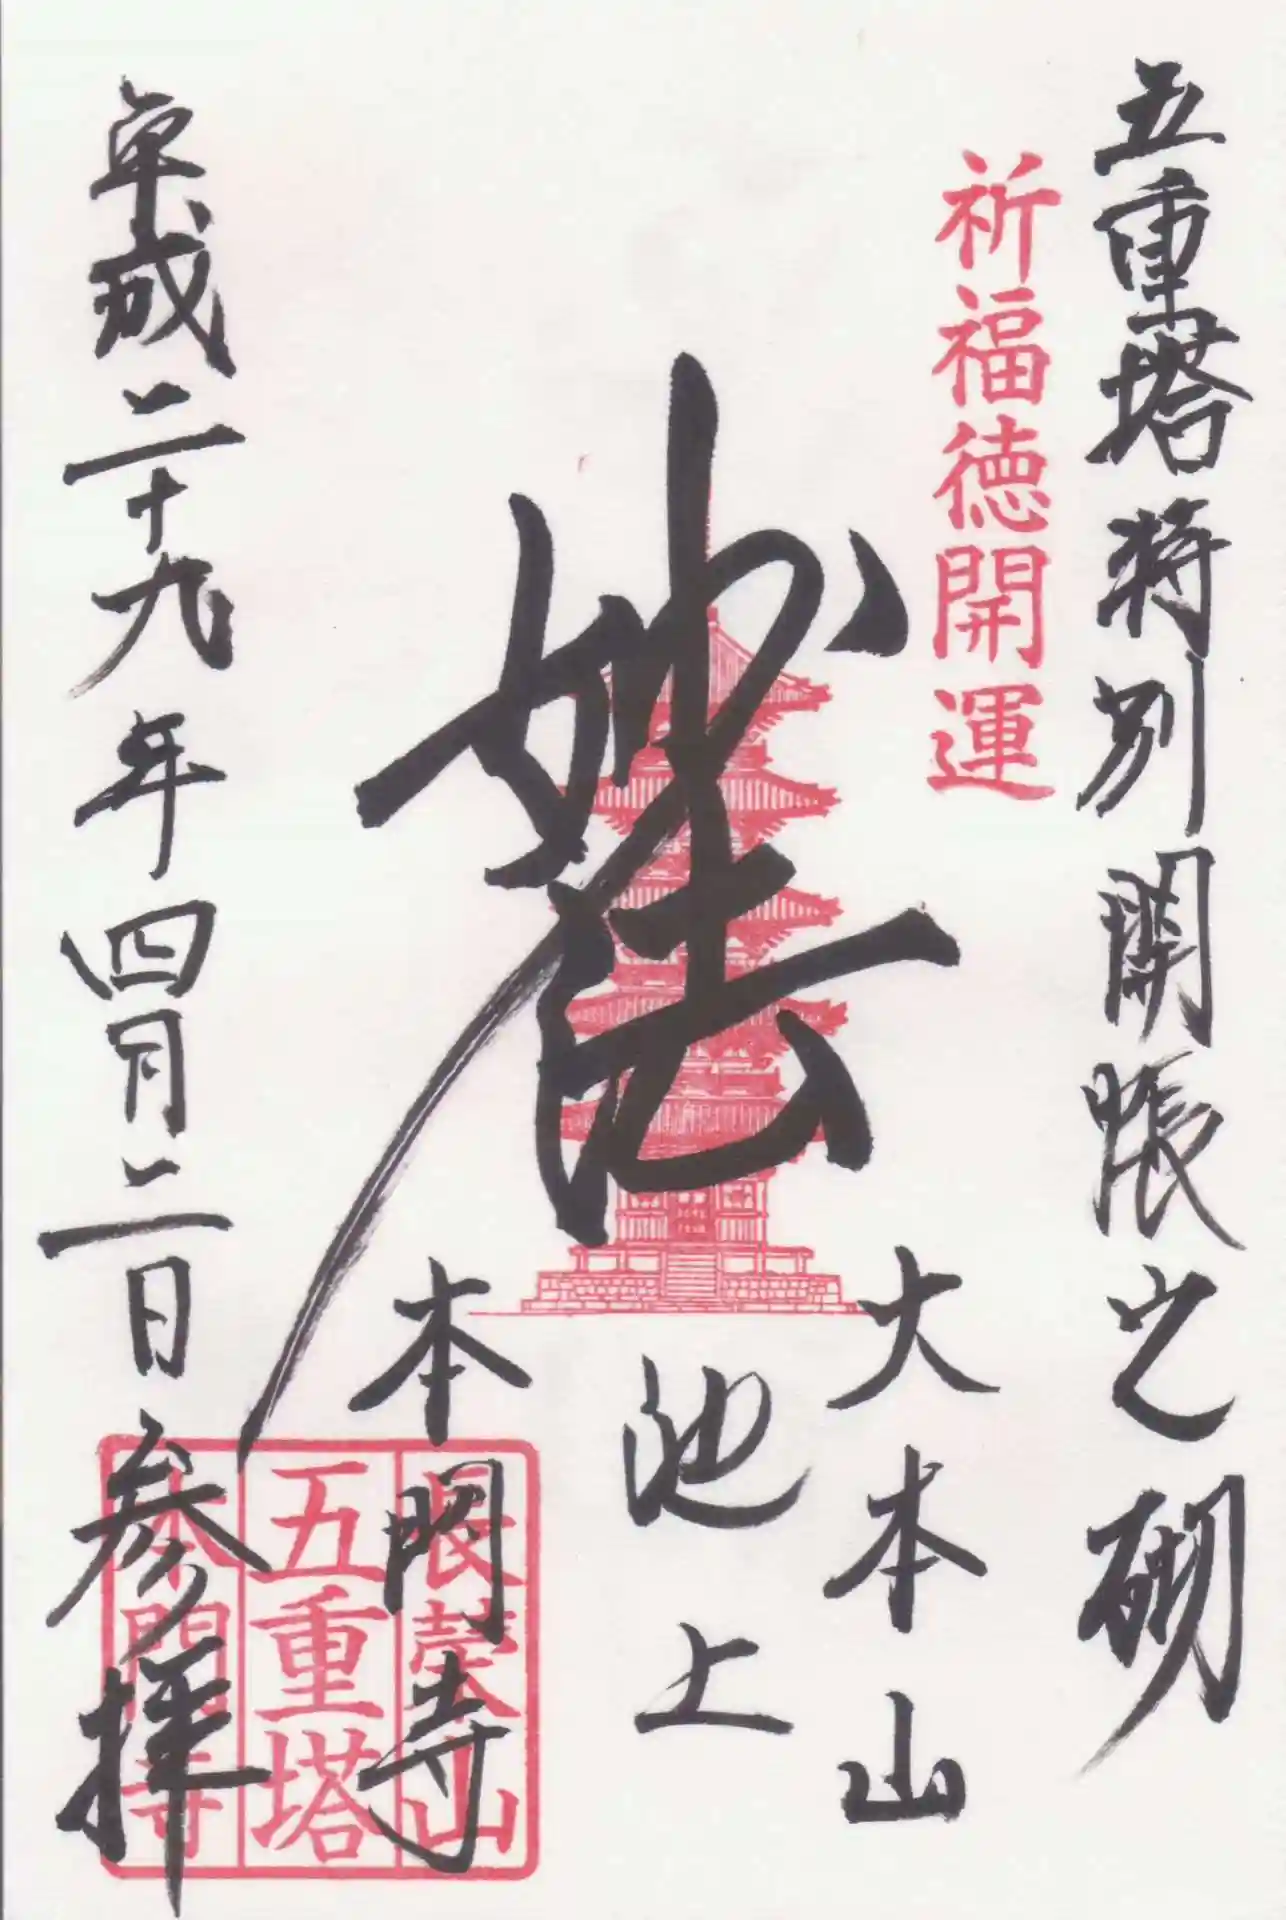 五重塔特別開帳之砌
祈福徳開運
大本山
池上
妙法
本門寺
長榮山
五重塔
本門寺
平成二十九年四月二日参拝